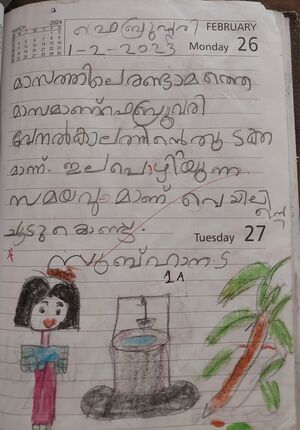 MARCH 2024
ഫെബ്രുവരി FEBRUARY
1-2-2023 Monday 26
മാസത്തിലെ രണ്ടാമത്തെ
മാസമാണ് ഫെബ്രുവരി
വേനൽകാലത്തിന്റെ തുടക്ക
മാണ്. ഇല പൊഴിയുന്ന
സമയവുംമാണ് വെയിലിന്റെ
ചൂടുകൊണ്ട്.
Tuesday 27
സുബ്ഹാന. S
1 A